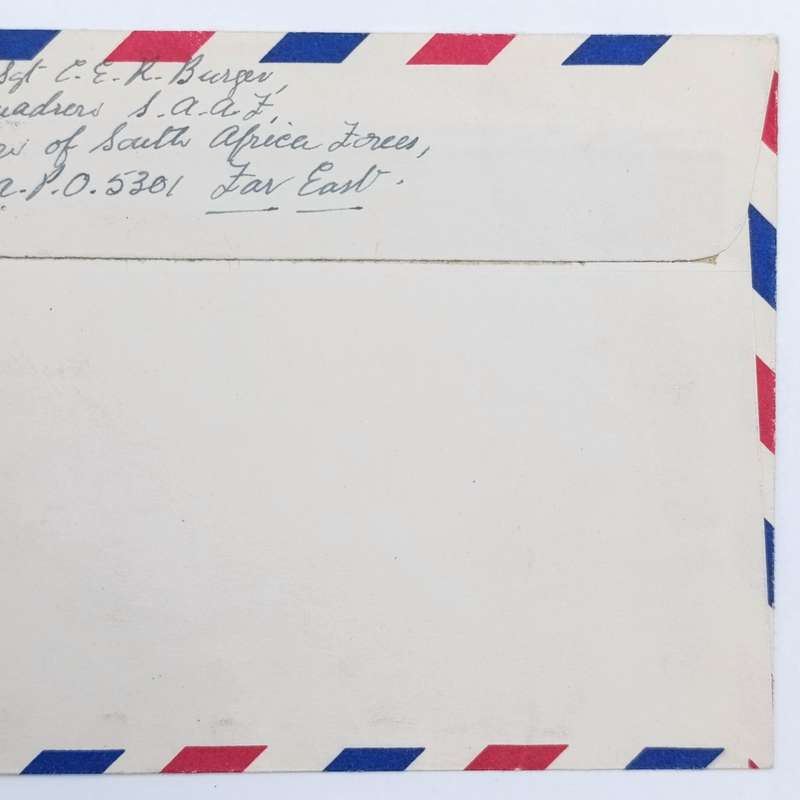 Sgt C. E. R. Burger,
uadron S.A.A.F,
of South Africa Forces,
A.P.O. 5301 Far East.